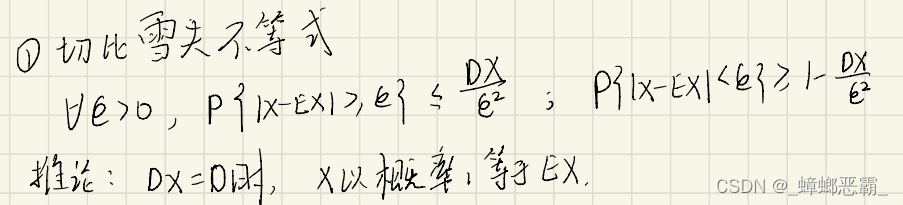 ① 切比雪夫不等式
∀ε>0, P{|X-EX|≥ε} ≤ DX/ε² ; P{|X-EX|<ε} ≥ 1-DX/ε²
推论: DX=0时, X以概率1等于EX.
CSDN @_蟑螂恶霸_